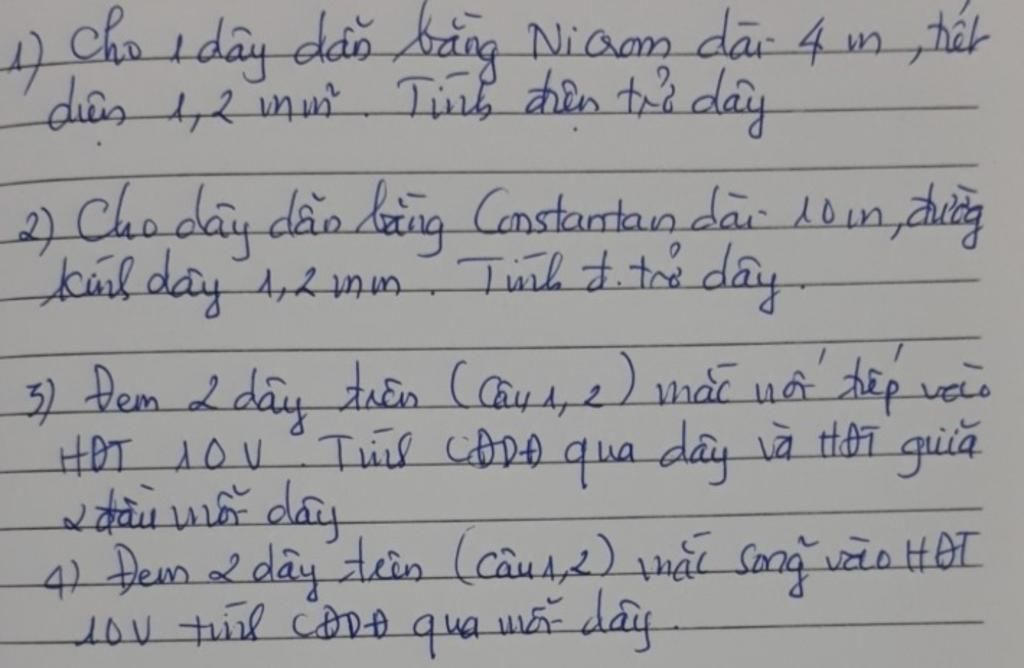 1) Cho 1 dây dẫn bằng Nicrom dài 4 m, tiết
diện 1,2 mm². Tính điện trở dây
2) Cho dây dẫn bằng Constantan dài 10 m, đường
kính dây 1,2 mm. Tính đ.trở dây.
3) Đem 2 dây trên (Câu 1, 2) mắc nối tiếp vào
HĐT 10 V. Tính CĐDĐ qua dây và HĐT giữa
2 đầu mỗi dây
4) Đem 2 dây trên (Câu 1,2) mắc song² vào HĐT
10V tính CĐDĐ qua mỗi dây.